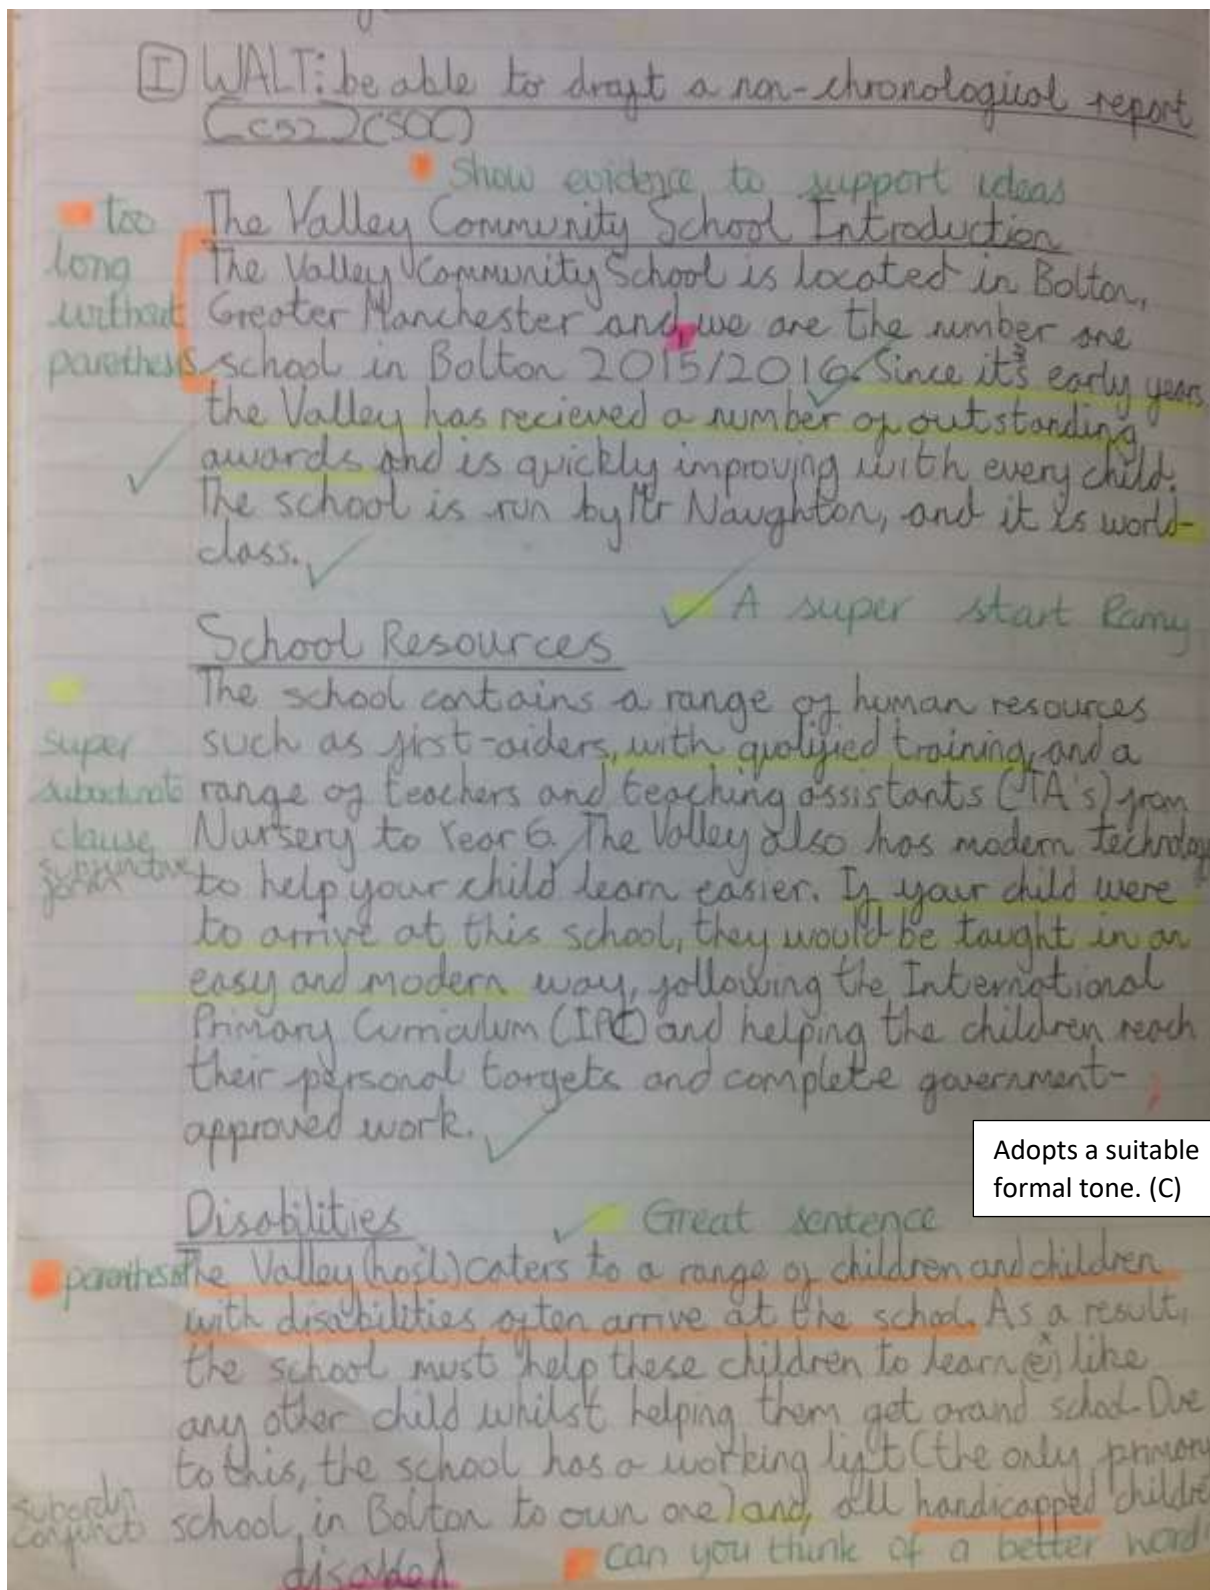 I WALT: be able to draft a non-chronological report
(CS2) (SOC)
Show evidence to support ideas
too
long
without
parethesis
The Valley Community School Introduction
The Valley Community School is located in Bolton,
Greater Manchester and, we are the number one
school in Bolton 2015/2016. Since it's early years
the Valley has recieved a number of outstanding
awards and is quickly improving with every child.
The school is run by Mr Naughton, and it is world-
class.
A super start Ramy
School Resources
The school contains a range of human resources
such as first-aiders, with qualified training, and a
range of teachers and teaching assistants (TA's) from
Nursery to Year 6. The Valley also has modern technology
to help your child learn easier. If your child were
to arrive at this school, they would be taught in an
easy and modern way, following the International
Primary Curriculum (IPC) and helping the children reach
their personal targets and complete government-
approved work.
super
subordinate
clause
subjunctive
form
Adopts a suitable
formal tone. (C)
Disabilities
Great sentence
parenthesis
The Valley (host) caters to a range of children and children
with disabilities often arrive at the school. As a result,
the school must help these children to learn (e) like
any other child whilst helping them get around school. Due
to this, the school has a working lift (the only primary
school, in Bolton to own one) and, all handicapped childre
disabled
subordin
conjunct
can you think of a better word